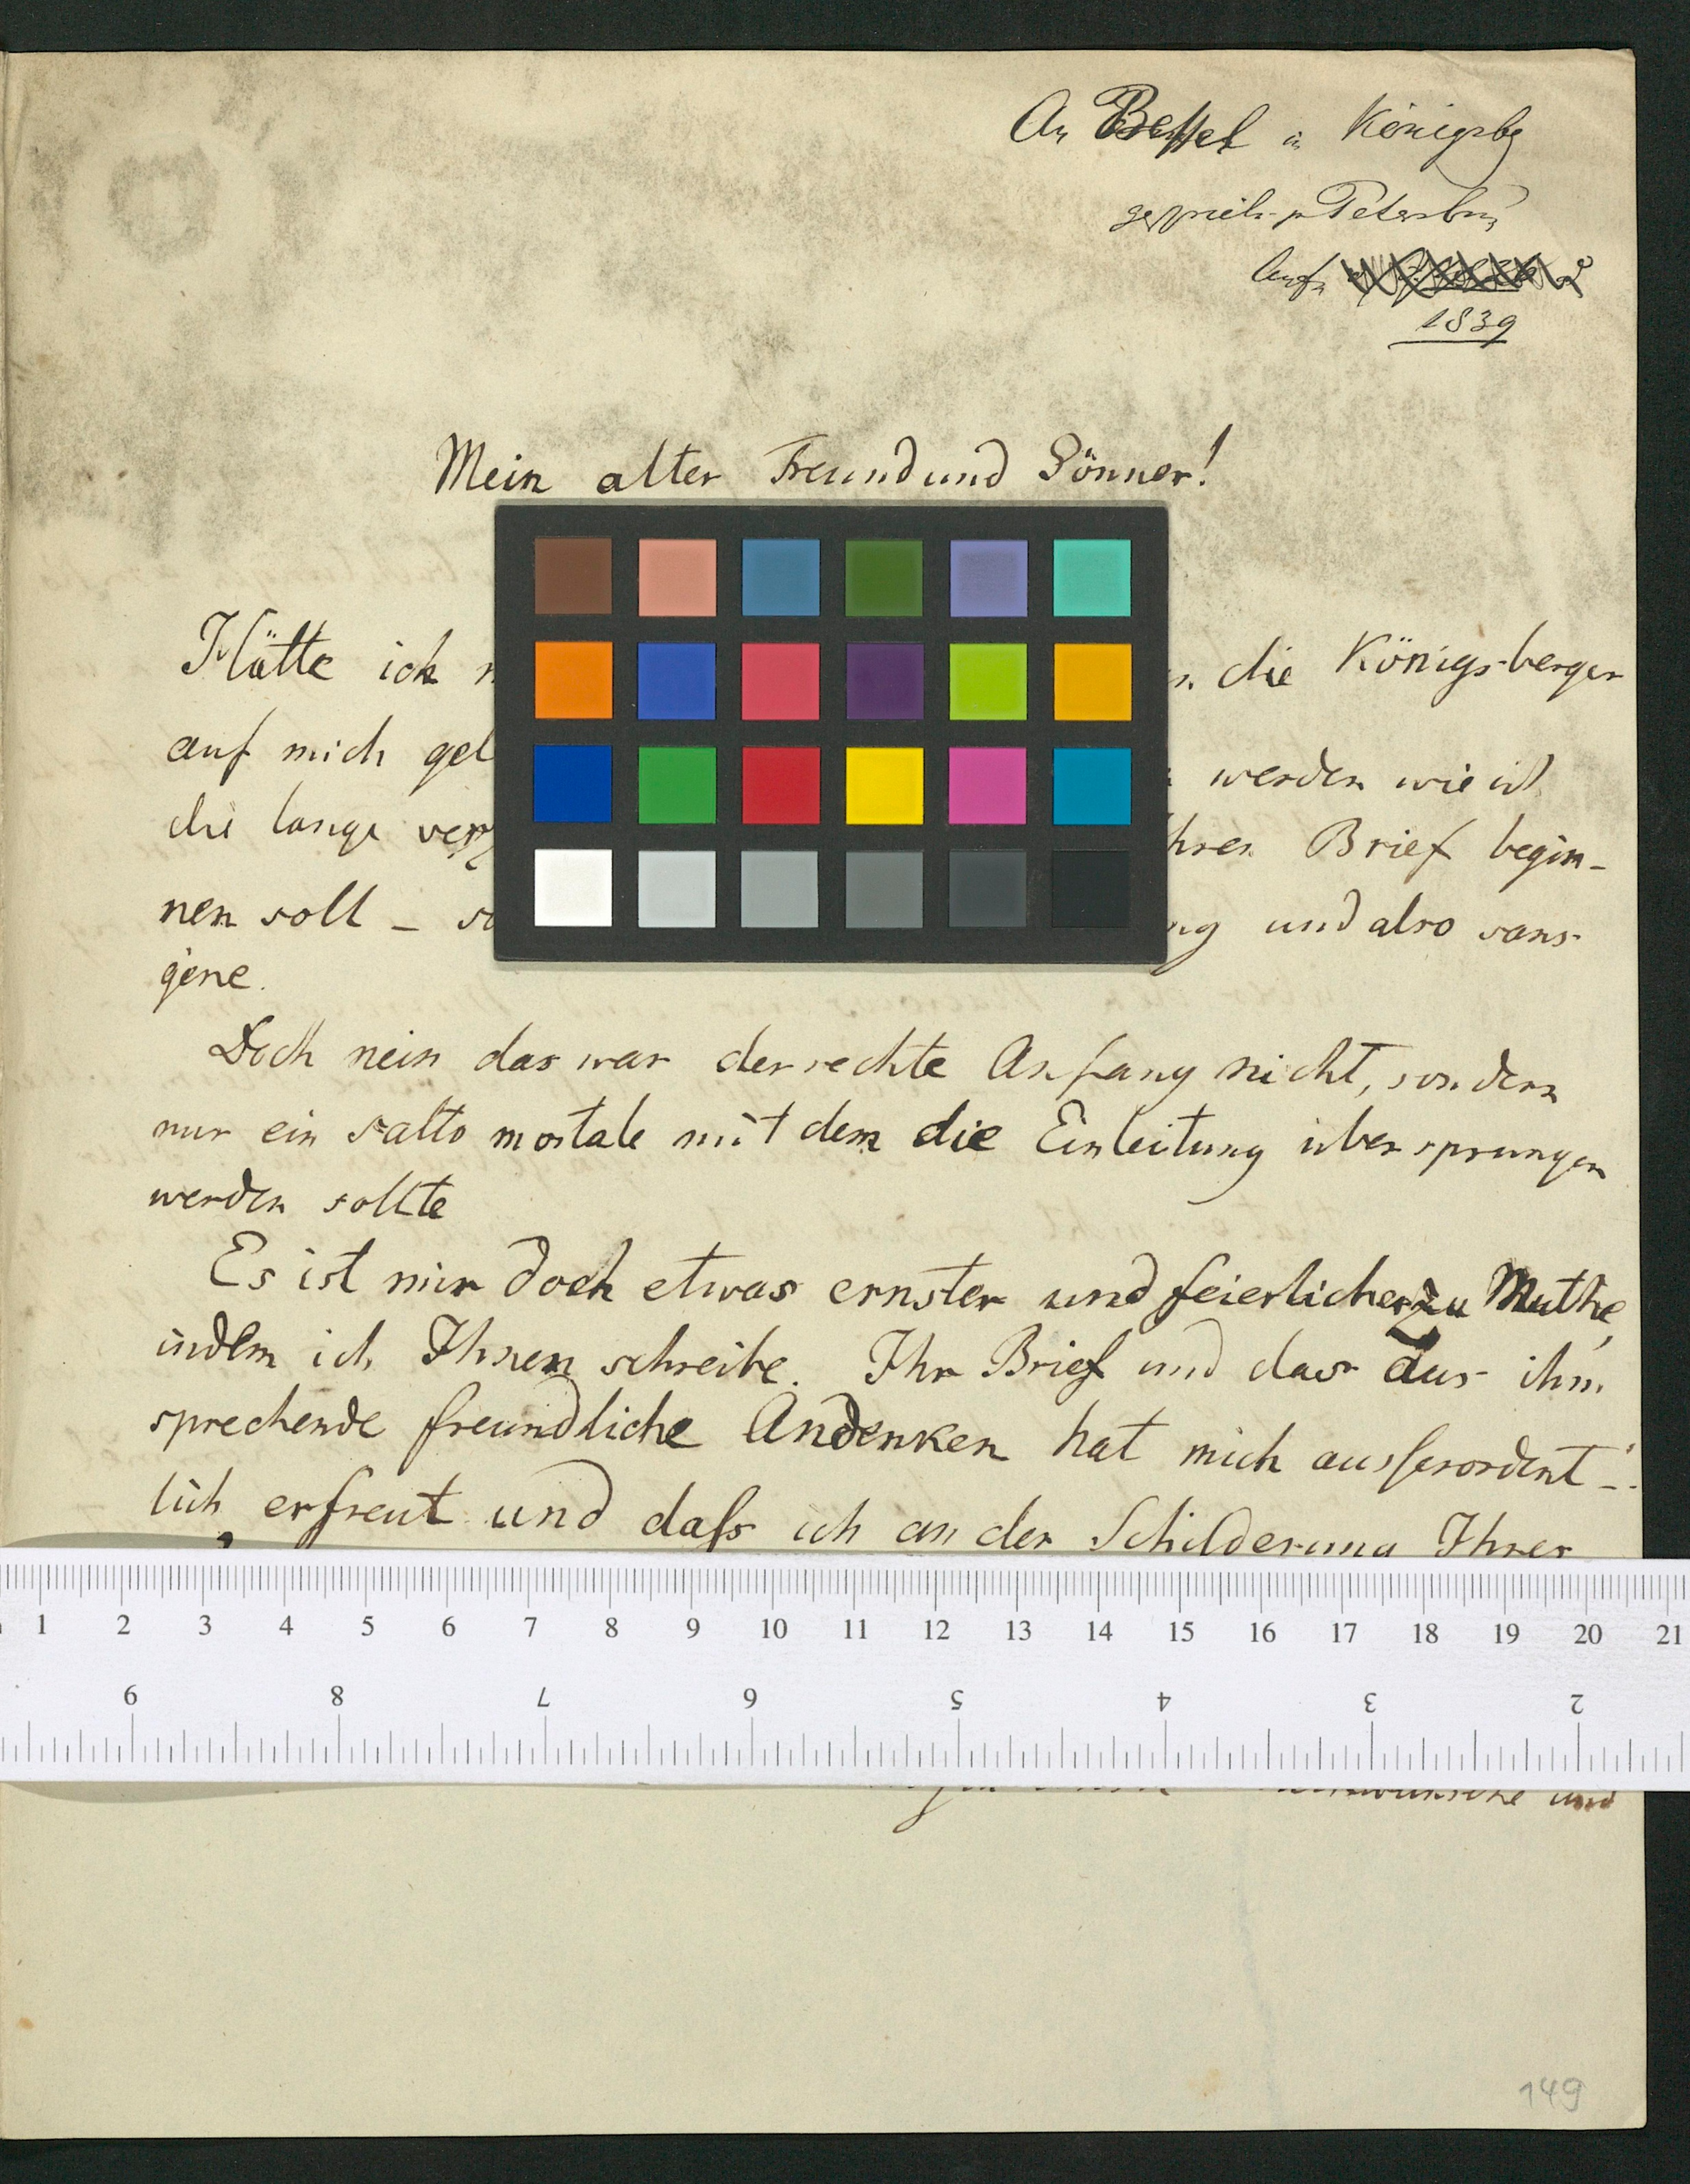 An Bessel in Königsbg
Petersburg
Anf.
1839
Mein alter Freund und Gönner!
Hätte ich die Königsberger
auf mich gel werden wie ich
die lange Brief begin-
nen soll – und also sans
gene.
Doch nein das war der rechte Anfang nicht, sondern
nur ein salto mortale mit dem die Einleitung übersprungen
werden sollte
Es ist mir doch etwas ernster und feierlicher zu Muthe,
indem ich Ihnen schreibe. Ihr Brief und das aus ihm
sprechende freundliche Andenken hat mich ausserordent-
lich erfreut und daſs ich an der Schilderung Ihrer
1 2 3 4 5 6 7 8 9 10 11 12 13 14 15 16 17 18 19 20 21
9 8 7 6 5 4 3 2
und
149